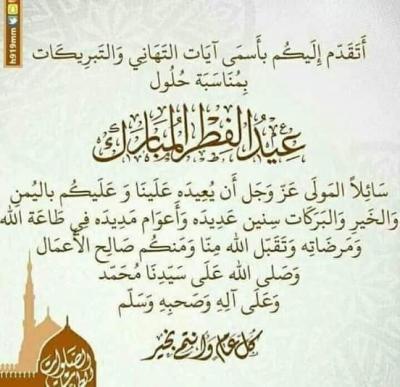 أَتَقَدَّم إِلَيكُم بأَسمَى آيَات التَهَانِي وَالتَبرِيكَات
بِمُنَاسَبَة حُلُول
عيد الفطر المبارك
سَائِلاً المَولَى عَزّ وَجَل أَن يُعِيدَه عَلَينَا وَ عَلَيكُم باليُمنِ
وَالخَيرِ والبَرَكَات سِنِين عَدِيدَه وَأَعوَام مَدِيدَه فِي طَاعَة الله
وَمَرضَاتِه وَتَقَبَل الله مِنَا وَمَنكُم صَالِح الأَعمَال
وَصَلى الله عَلَى سَيّدِنَا مُحَمَد
وَعَلَى آلِهِ وَصَحبِهِ وَسَلّم
كل عام وأنتم بخير
h919mm